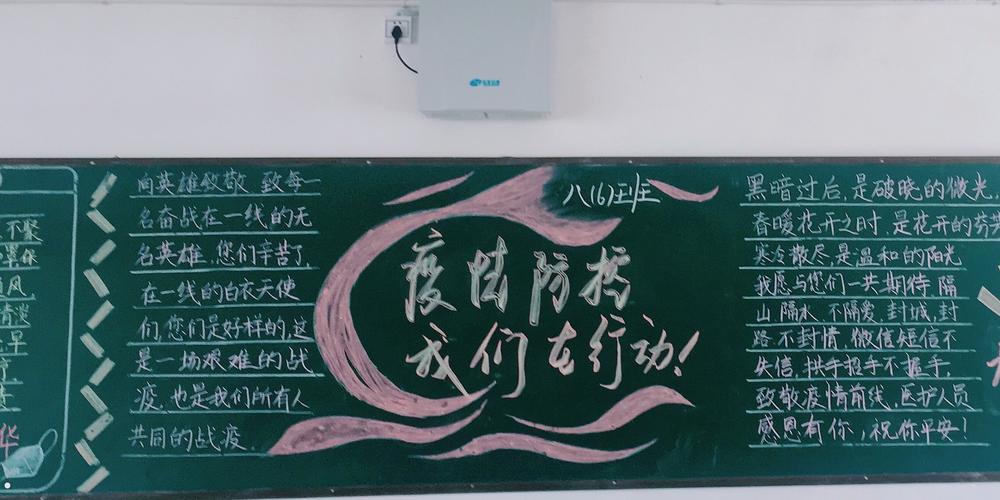 向英雄致敬 致每一
名奋战在一线的无
名英雄,您们辛苦了,
在一线的白衣天使
们,您们是好样的,这
是一场艰难的战
疫,也是我们所有人
共同的战疫.
八(6)班
疫情防控
我们在行动!
黑暗过后,是破晓的微光,
春暖花开之时,是花开的芬芳
寒冷散尽是温和的阳光
我愿与您们一共期待,隔
山隔水,不隔爱,封城,封
路不封情,微信短信不
失信,拱手招手不握手,
致敬疫情前线,医护人员
感恩有你,祝你平安!
不聚
罩保
风
情
早
华